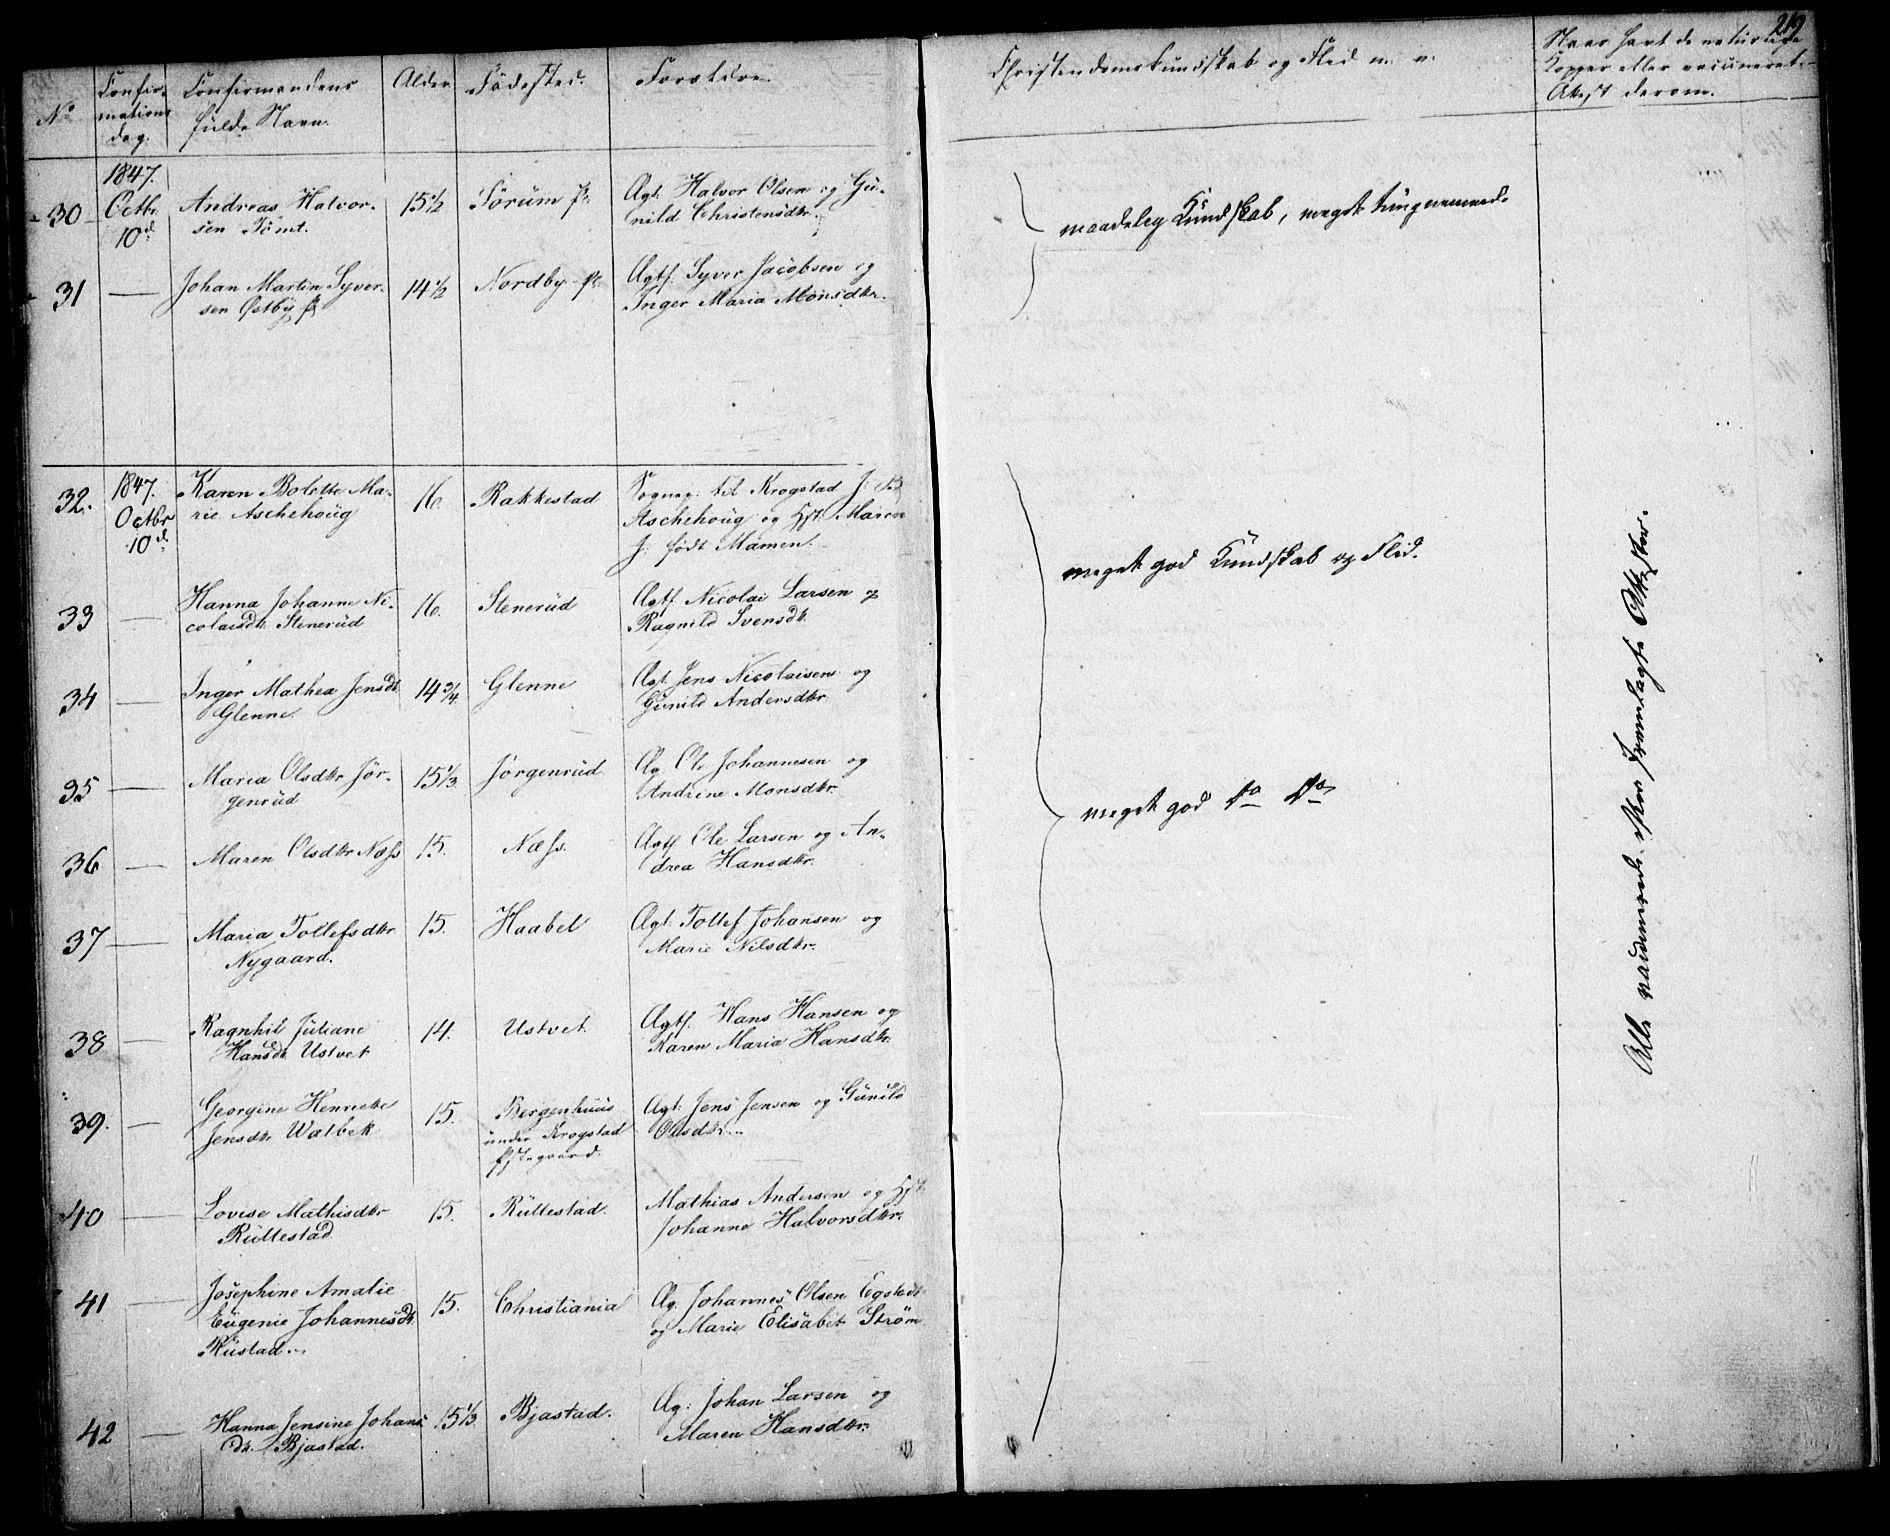 219
No
Confir-
mations
dag.
Confirmandens
fulde Navn.
Alder
Födested.
Forældre.
Christendomskundskab og Flid m. v.
Naar havt de naturlige
Kopper eller vaccineret.
Attest derom.
30 1847. Octbr. 10d Andreas Halvor-
sen Tömt. 15 1/2 Sörum Agt. Halvor Olsen og Gu-
nild Christensdtr.
maadelig Kundskab, meget tungnemmede
31 — Johan Martin Syver-
sen Østby 14 1/2 Nordby Agtf. Syver Jacobsen og
Inger Maria Monsdtr.
32. 1847. Octbr 10d. Karen Bolette Ma-
rie Aschehoug 16. Rakkestad Sognep: til Krogstad J: B
Aschehoug og Hst. Maren
J: født Mamen.
meget god Kundskab og Flid.
33 — Hanna Johanne Ni-
colaisdt. Stenerud 16. Stenerud Agtf Nicolai Larsen og
Ragnild Svensdt.
34 — Inger Mathea Jensdt
Glenne. 14 3/4 Glenne Agt. Jens Nicolaisen og
Gunild Andersdtr.
35 — Maria Olsdtr Jör-
genrud 15 1/3 Jørgenrud Ag Ole Johannesen og
Andrine Monsdtr.
meget god do do
36 — Maren Olsdtr Næss 15. Næss. Agtf Ole Larsen og An-
drea Hansdtr.
37 — Maria Tollefsdtr
Nygaard. 15. Haabel Agt. Tollef Johansen og
Marie Nilsdtr.
38 — Ragnhil Juliane
Hansdt. Ustvet 14. Ustvet. Agtf. Hans Hansen og
Karen Maria Hansdtr.
39. — Georgine Henriette
Jensdtr Walbek 15. Bergenhuus
under Krogstad
Agt. Jens Jensen og Gunild
Olsdtr.
40 — Lovise Mathisdtr
Rullestad 15. Rullestad. Mathias Andersen og Hst.
Johanne Halvorsdtr.
41 — Josephine Amalie
Eugenie Johannesdt.
Rustad. 15. Christiania Ag. Johannes Olsen Egstedt
og Marie Elisabet Strøm
42 — Hanna Jensine Johans
dt. Bjastad. 15 1/3 Bjastad. Ag: Johan Larsen og
Maren Hansdtr.
Alle vaccinerede efter fremlagte Attester.